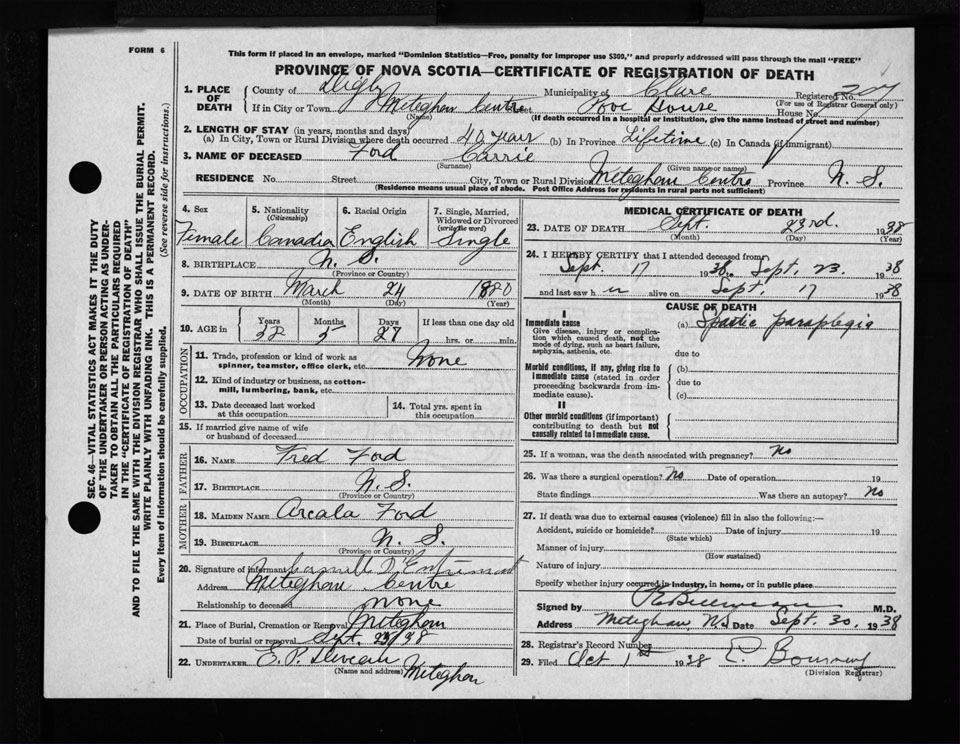 FORM 6
This form if placed in an envelope, marked "Dominion Statistics—Free, penalty for improper use $300," and properly addressed will pass through the mail "FREE"
PROVINCE OF NOVA SCOTIA—CERTIFICATE OF REGISTRATION OF DEATH
SEC. 46—VITAL STATISTICS ACT MAKES IT THE DUTY
OF THE UNDERTAKER OR PERSON ACTING AS UNDER-
TAKER TO OBTAIN ALL THE PARTICULARS REQUIRED
IN THE "CERTIFICATE OF REGISTRATION OF DEATH"
AND TO FILE THE SAME WITH THE DIVISION REGISTRAR WHO SHALL ISSUE THE BURIAL PERMIT.
WRITE PLAINLY WITH UNFADING INK. THIS IS A PERMANENT RECORD.
Every item of information should be carefully supplied. (See reverse side for instructions.)
1. PLACE OF DEATH
County of Digby Municipality of Clare Registered No. 207
(For use of Registrar General only)
If in City or Town Meteghan Centre Street Poor House House No.
(Name) (If death occurred in a hospital or institution, give the name instead of street and number)
2. LENGTH OF STAY (in years, months and days)
(a) In City, Town or Rural Division where death occurred 40 years (b) In Province Lifetime (c) In Canada (if immigrant)
3. NAME OF DECEASED Ford Carrie
(Surname) (Given name or names)
RESIDENCE No. Street City, Town or Rural Division Meteghan Centre Province N. S.
(Residence means usual place of abode. Post Office Address for residents in rural parts not sufficient)
4. Sex 5. Nationality (Citizenship) 6. Racial Origin 7. Single, Married, Widowed or Divorced (write the word)
Female Canadian English Single
8. BIRTHPLACE N. S.
(Province or Country)
9. DATE OF BIRTH March 24 1880
(Month) (Day) (Year)
10. AGE in Years Months Days If less than one day old
5 27 hrs. or min.
OCCUPATION
11. Trade, profession or kind of work as spinner, teamster, office clerk, etc. None
12. Kind of industry or business, as cotton-mill, lumbering, bank, etc.
13. Date deceased last worked at this occupation
14. Total yrs. spent in this occupation
15. If married give name of wife or husband of deceased
FATHER
16. NAME Fred Ford
17. BIRTHPLACE N. S.
(Province or Country)
MOTHER
18. MAIDEN NAME Arcala Ford
19. BIRTHPLACE N. S.
(Province or Country)
20. Signature of informant D'Entremont
Address Meteghan Centre
Relationship to deceased none
21. Place of Burial, Cremation or Removal Meteghan
Date of burial or removal Sept.
22. UNDERTAKER E. P. Deveau Meteghan
(Name and address)
MEDICAL CERTIFICATE OF DEATH
23. DATE OF DEATH Sept. 23rd. 1938
(Month) (Day) (Year)
24. I HEREBY CERTIFY that I attended deceased from
Sept. 17 1938 to Sept. 23. 1938
and last saw her alive on Sept. 17 1938
CAUSE OF DEATH
I
Immediate cause (a) Spastic paraplegia
Give disease, injury or complication which caused death, not the mode of dying, such as heart failure, asphyxia, asthenia, etc.
due to
Morbid conditions, if any, giving rise to immediate cause (stated in order proceeding backwards from immediate cause).
(b)
due to
(c)
II
Other morbid conditions (if important) contributing to death but not causally related to immediate cause.
25. If a woman, was the death associated with pregnancy? No
26. Was there a surgical operation? No Date of operation 19
State findings Was there an autopsy? No
27. If death was due to external causes (violence) fill in also the following:—
Accident, suicide or homicide? Date of injury 19
(State which)
Manner of injury
(How sustained)
Nature of injury
Specify whether injury occurred in industry, in home, or in public place
Signed by M.D.
Address Meteghan, NS Date Sept. 30. 1938
28. Registrar's Record Number
29. Filed Oct 1st 1938
(Division Registrar)